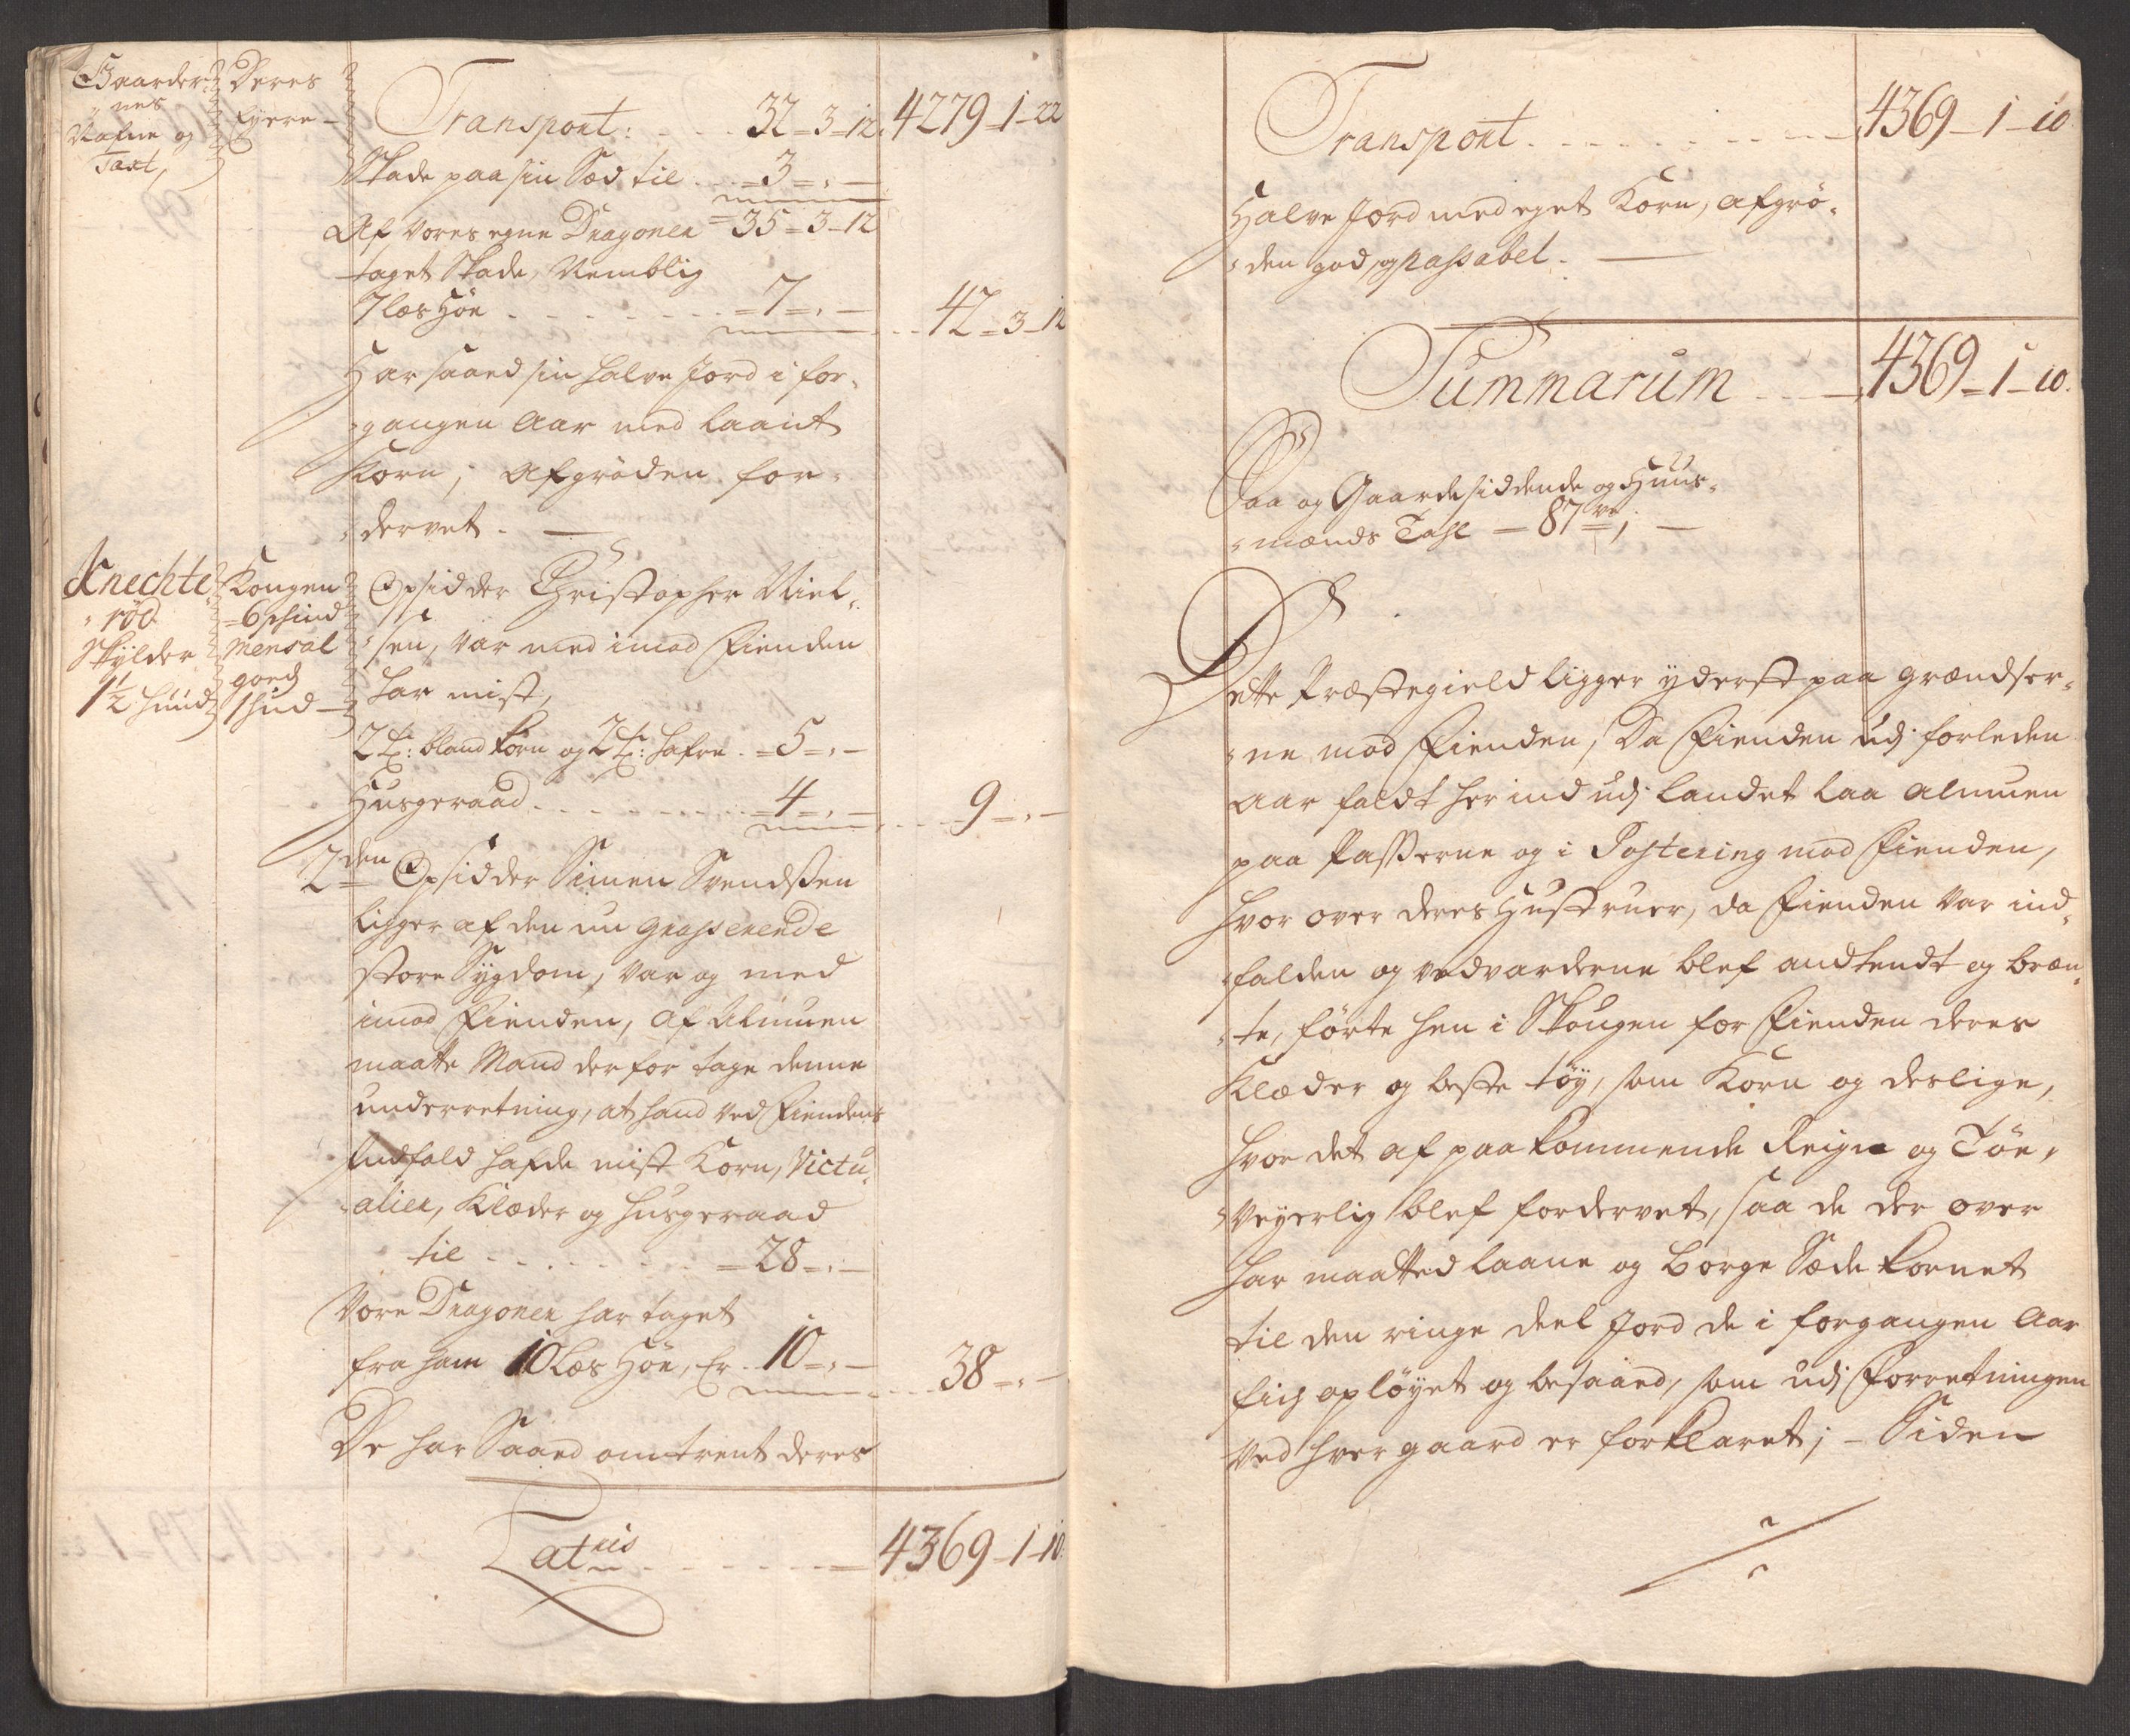 Gaarder-
nes
Nafne og
Taxt,
Deres
Eyere
Transport: . . . 32-3-12. 4279-1-22
Skade paa sin Sæd til . . =3=,-
Af Vores egne Dragoner =35=3-12
taget Skade, Nemblig
7 læs Höe . . . . =7=,- . . 42=3-12
Har saaed sin halve Jord i for-
gangen Aar med laant
Korn; Afgröden for-
dervet. —
Knechte-
röd
Skylder
1½ hüud
Kongen
=6 schind
Mensal
goed
1 hud
Opsidder Christopher Niel-
sen, Var med imod Fienden
har mist,
2 tr: bland korn og 2 tr: hafre . =5=,-
Husgeraad . . . . =4=,- . . 9=,-
2den Opsidder Simen Svendssen
ligger af den nu grasserende
store Sÿgdom, Var og med
imod Fienden, Af Almuen
maatte Mand derfor tage denne
underretning, at hand Ved Fiendens
Indfald hafde mist Korn, Victu-
alier, Klæder og husgeraad
til . . . . . =28=,-
Vore Dragoner har taget
fra ham 10 Læs Höe, Er . . 10=,- . . 38=,-
De har Saaed omtrent deres
Latus . . . . 4369-1-10.
Transport . . . . . 4369-1-10
Halve Jord med eget Korn, afgrö-
den god, og passabel. —
Summarum . . — 4369-1-10.
Paa og Gaardesiddende og Huus-
mænds Tahl — 87ve; —
Dette Præstegield ligger yderst paa grændser-
ne mod Fienden, Da Fienden udj forleden
Aar faldt her ind udj landet laa Almuen
paa Passerne og i Postering mod Fienden,
hvor over deres Hustruer, da Fienden Var ind-
falden og vedvarderne blef andtendt og bræn-
te, förte hen i Skougen for Fienden deres
Klæder og beste töy, som Korn og deslige,
hvor det af paakommende Reign og Tör-
Veyerlig blef fordervet, saa de der over
har maatted laane og borge Sæde kornet
til den ringe deel Jord de i forgangen Aar
fich oplöyet og besaaed, som udj Forretningen
Ved hver gaard er forklaret; — Siden